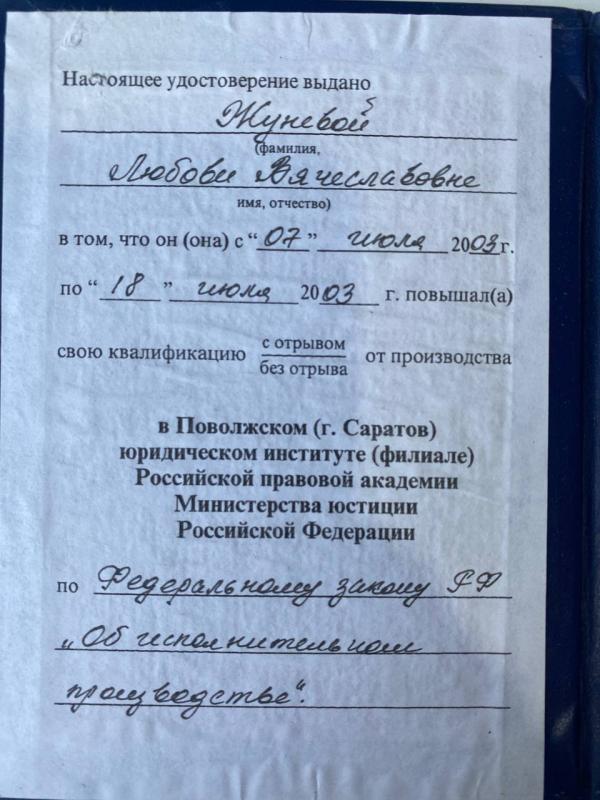 Настоящее удостоверение выдано
Жуневой
(фамилия,
Любови Вячеславовне
имя, отчество)
в том, что он (она) с “07” июля 2003г.
по “18” июля 2003 г. повышал(а)
свою квалификацию с отрывом
без отрыва от производства
в Поволжском (г. Саратов)
юридическом институте (филиале)
Российской правовой академии
Министерства юстиции
Российской Федерации
по Федеральному закону РФ
„Об исполнительном
производстве“.